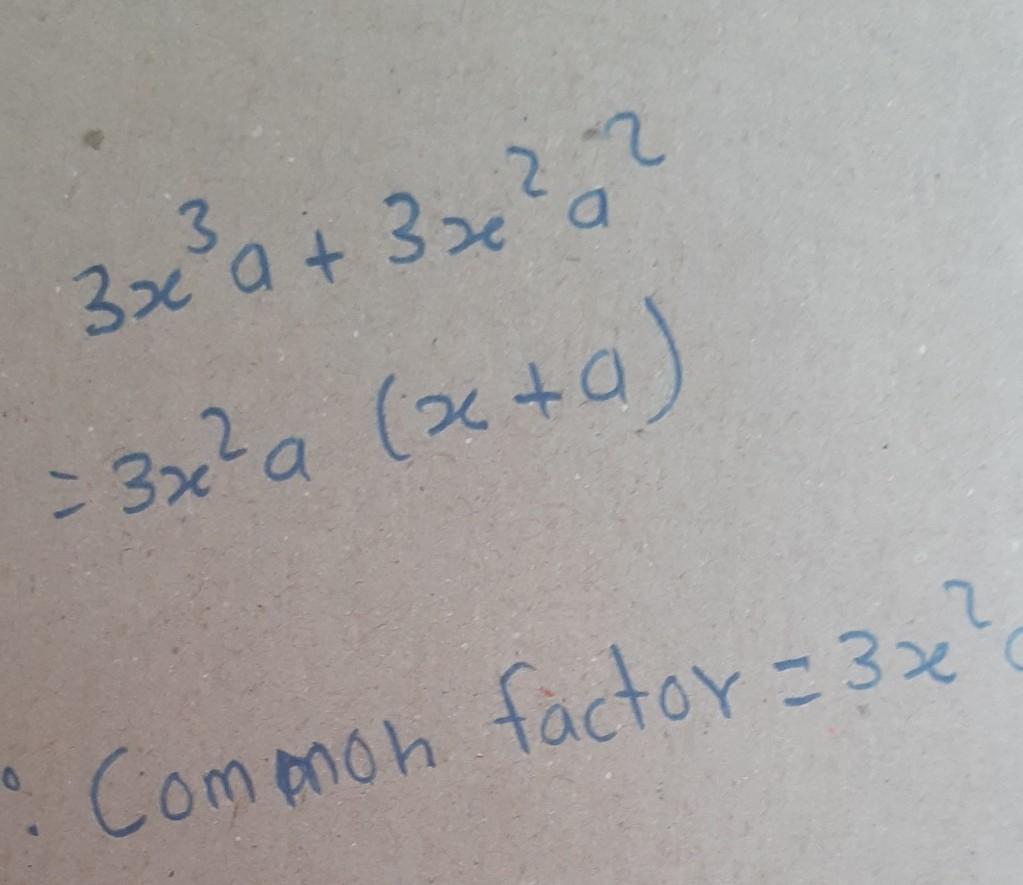 3x³a + 3x²a²
= 3x²a (x + a)
∴ Common factor = 3x²